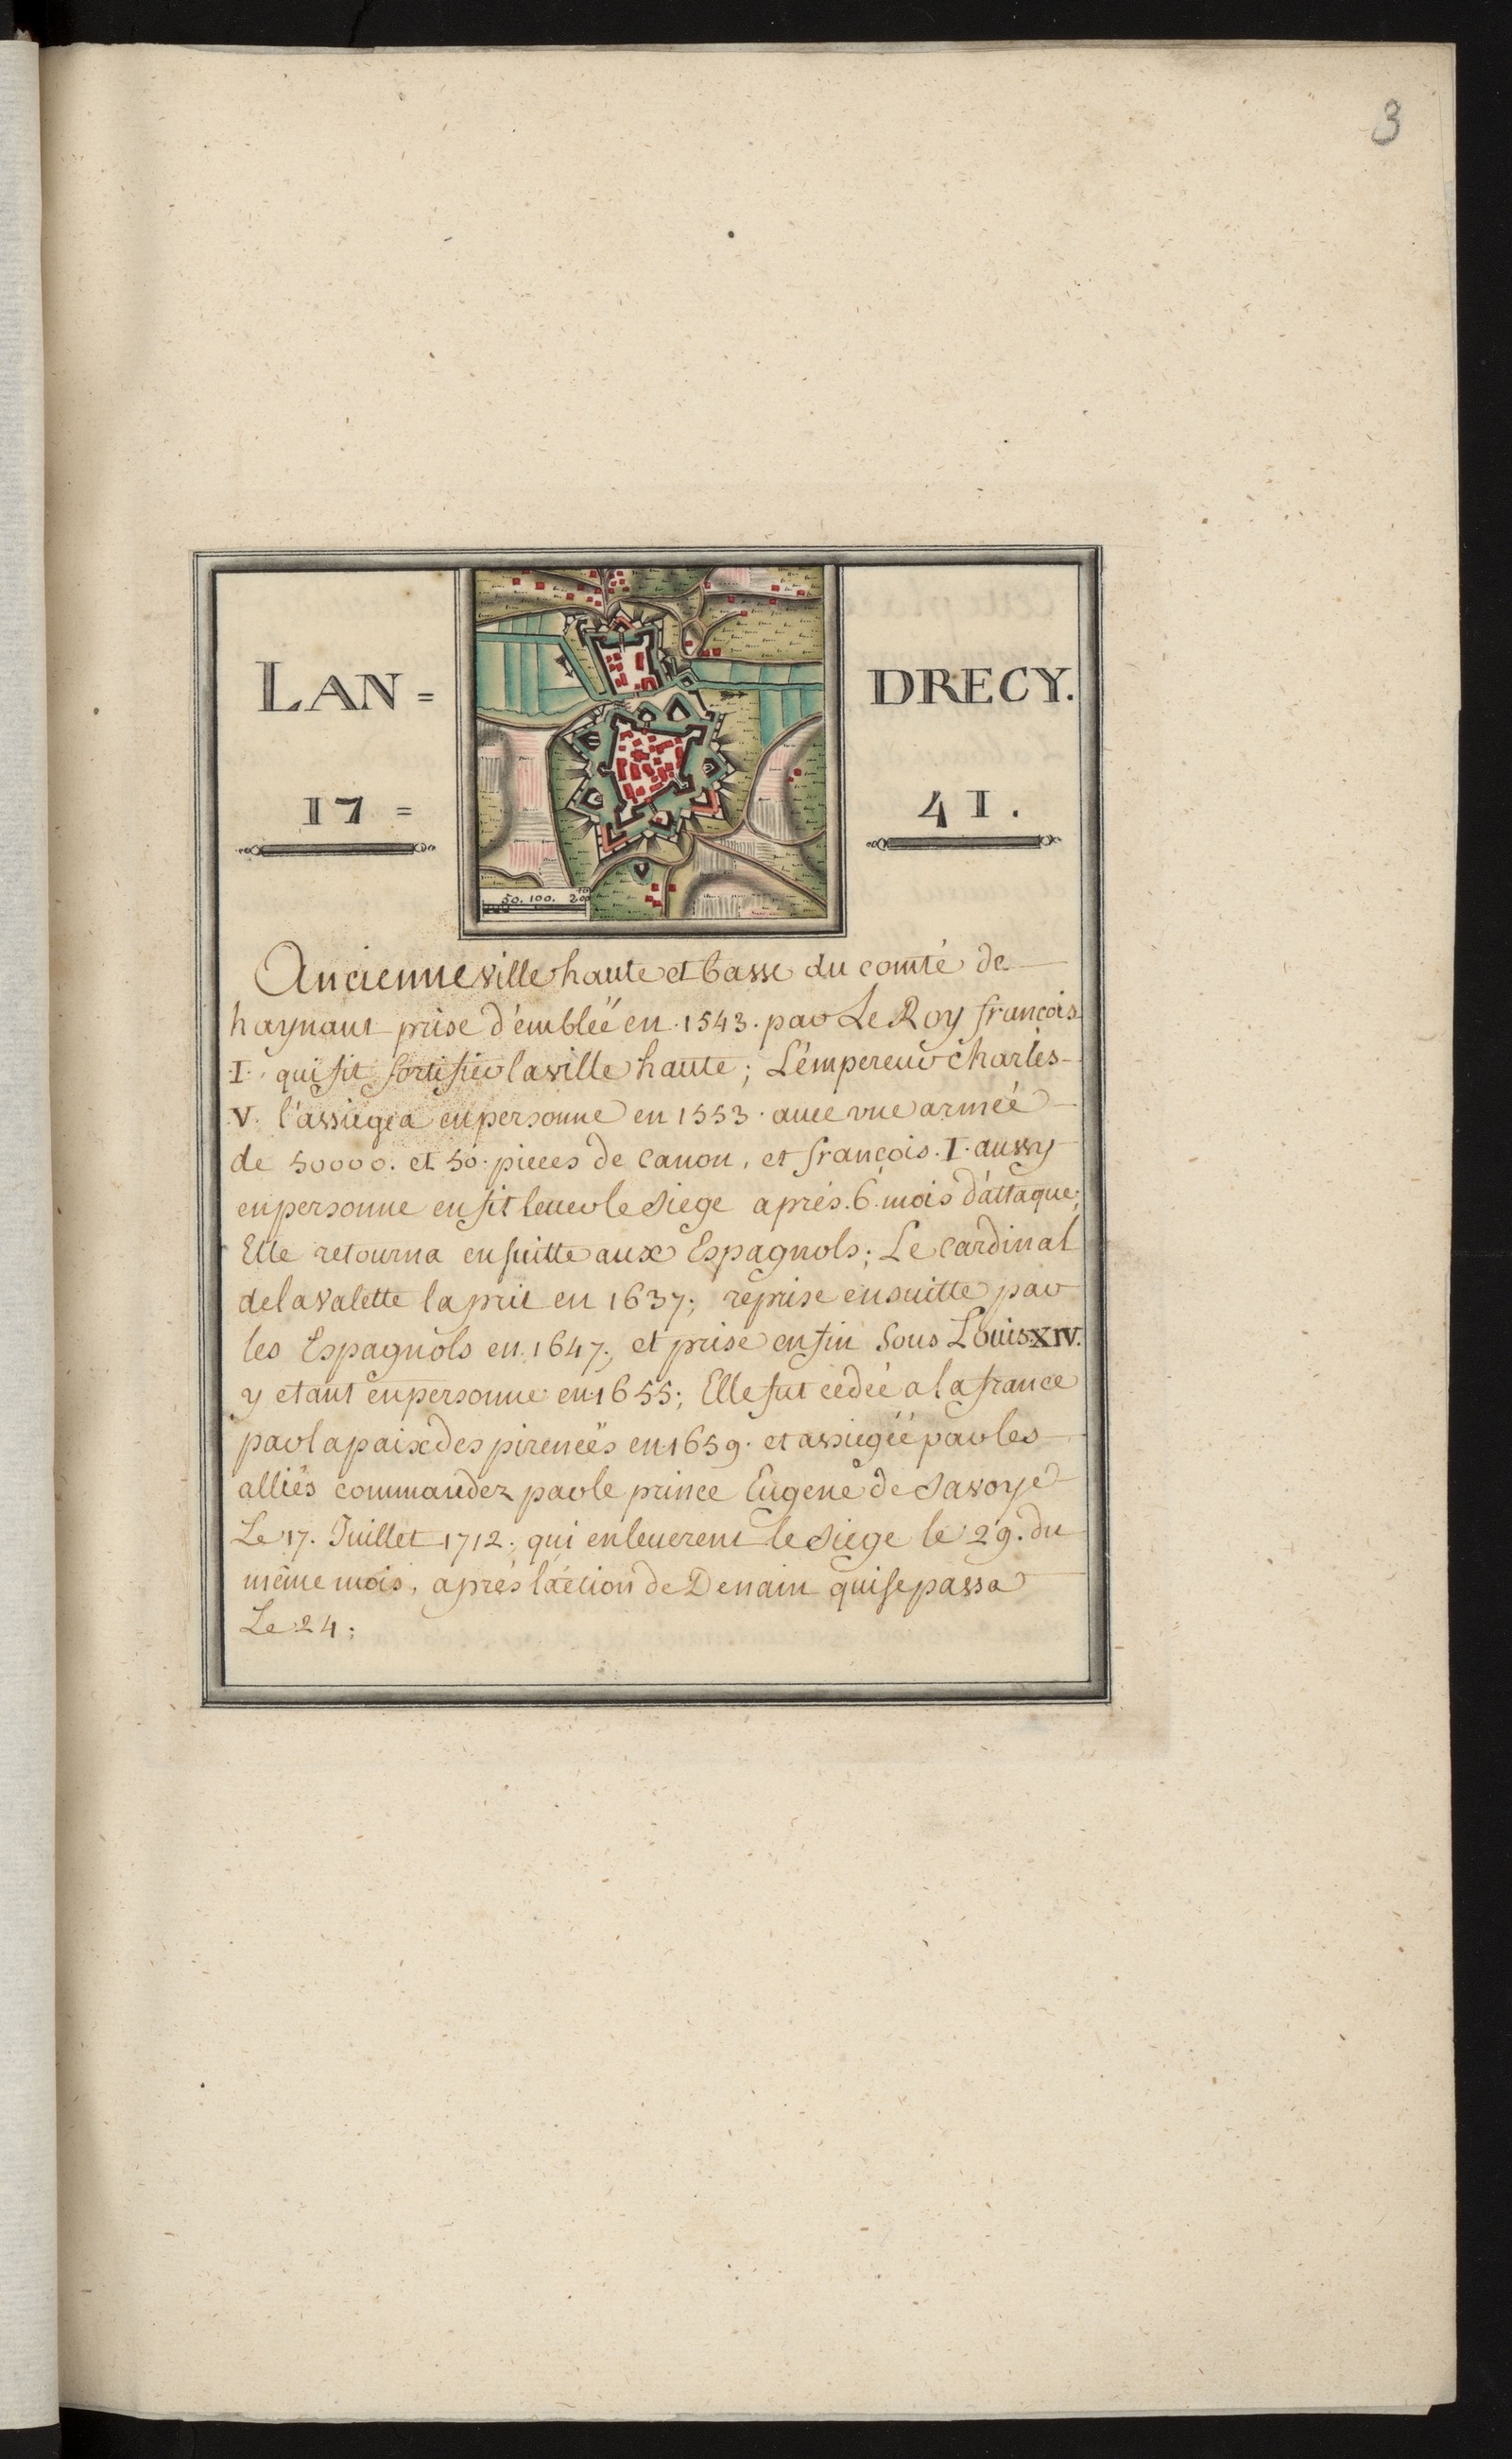 3
LAN = DRECY.
17 = 41.
50. 100. 200
Ancienne ville haute et basse du comté de
haynaut prise d'emblëe en 1543. par Le Roy françois
I. qui fit fortifier la ville haute; L'émpereur charles
V. l'assiegea en personne en 1553. avec vne armée
de 50000. et 50. pieces de canon, et françois. I. aussy
en personne en fit lever le siege aprés. 6. mois d'attaque;
Elle retourna ensuitte aux Espagnols; Le cardinal
de la valette la prit en 1637; reprise ensuitte par
les Espagnols en 1647; et prise enfin sous Louis XIV.
y etant en personne en 1655; Elle fut cedée a la france
par la paix des pireneës en 1659. et assiegëe par les
alliés commandez par le prince Eugene de Savoye
Le 17. Juillet 1712; qui en leverent le siege le 29. du
même mois, aprés l'action de Denain qui se passa
Le 24;